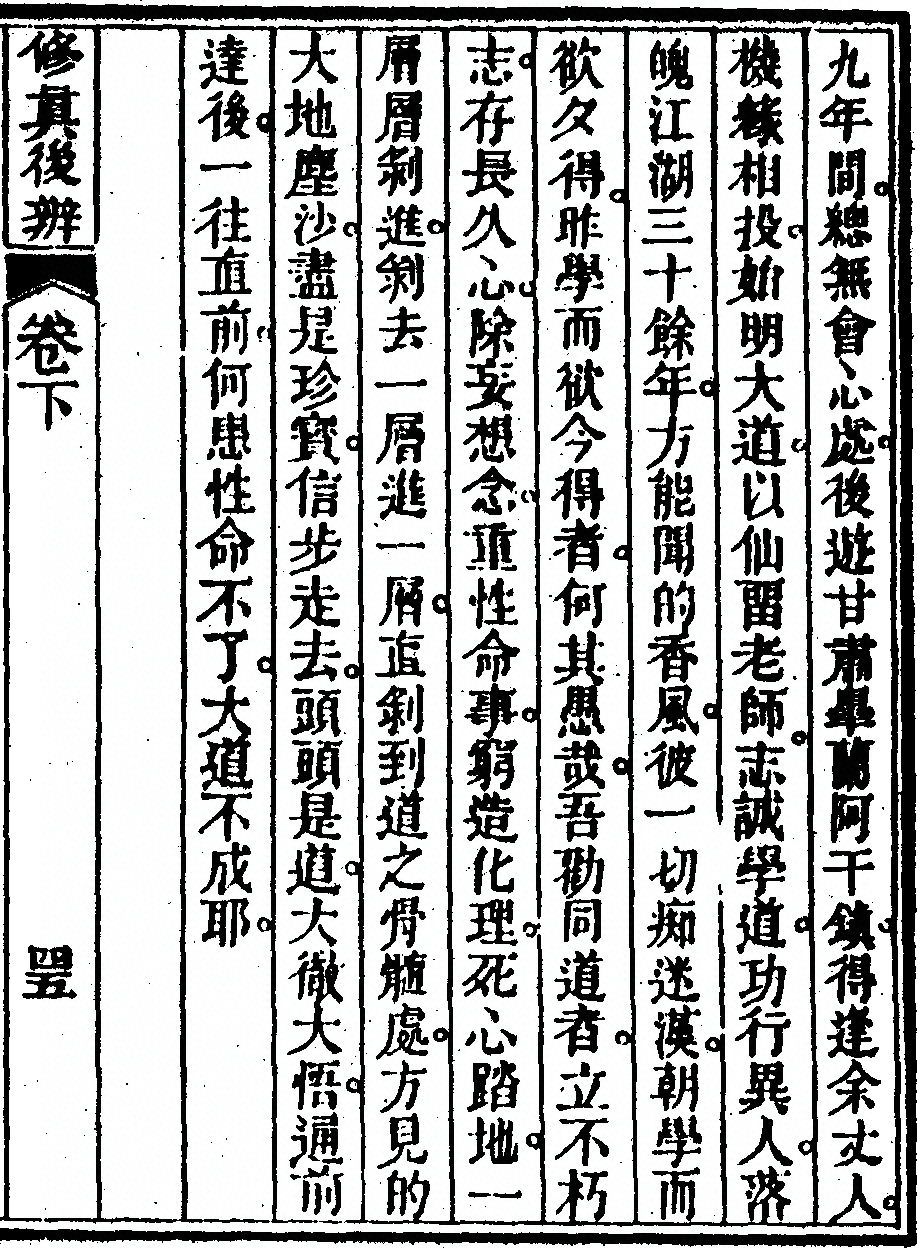 九年間總無會心處後遊甘肅臯蘭阿干鎮得逢余丈人
機緣相投始明大道以仙畱老師志誠學道功行異人落
魄江湖三十餘年方能聞的香風彼一切痴迷漢朝學而
欲夕得昨學而欲今得者何其愚哉吾勸同道者立不朽
志存長久心除妄想念重性命事窮造化理死心踏地一
層層剝進剝去一層進一層直剝到道之骨髓處方見的
大地塵沙盡是珍寶信步走去頭頭是道大徹大悟通前
達後一往直前何患性命不了大道不成耶
修真後辨 卷下 四五